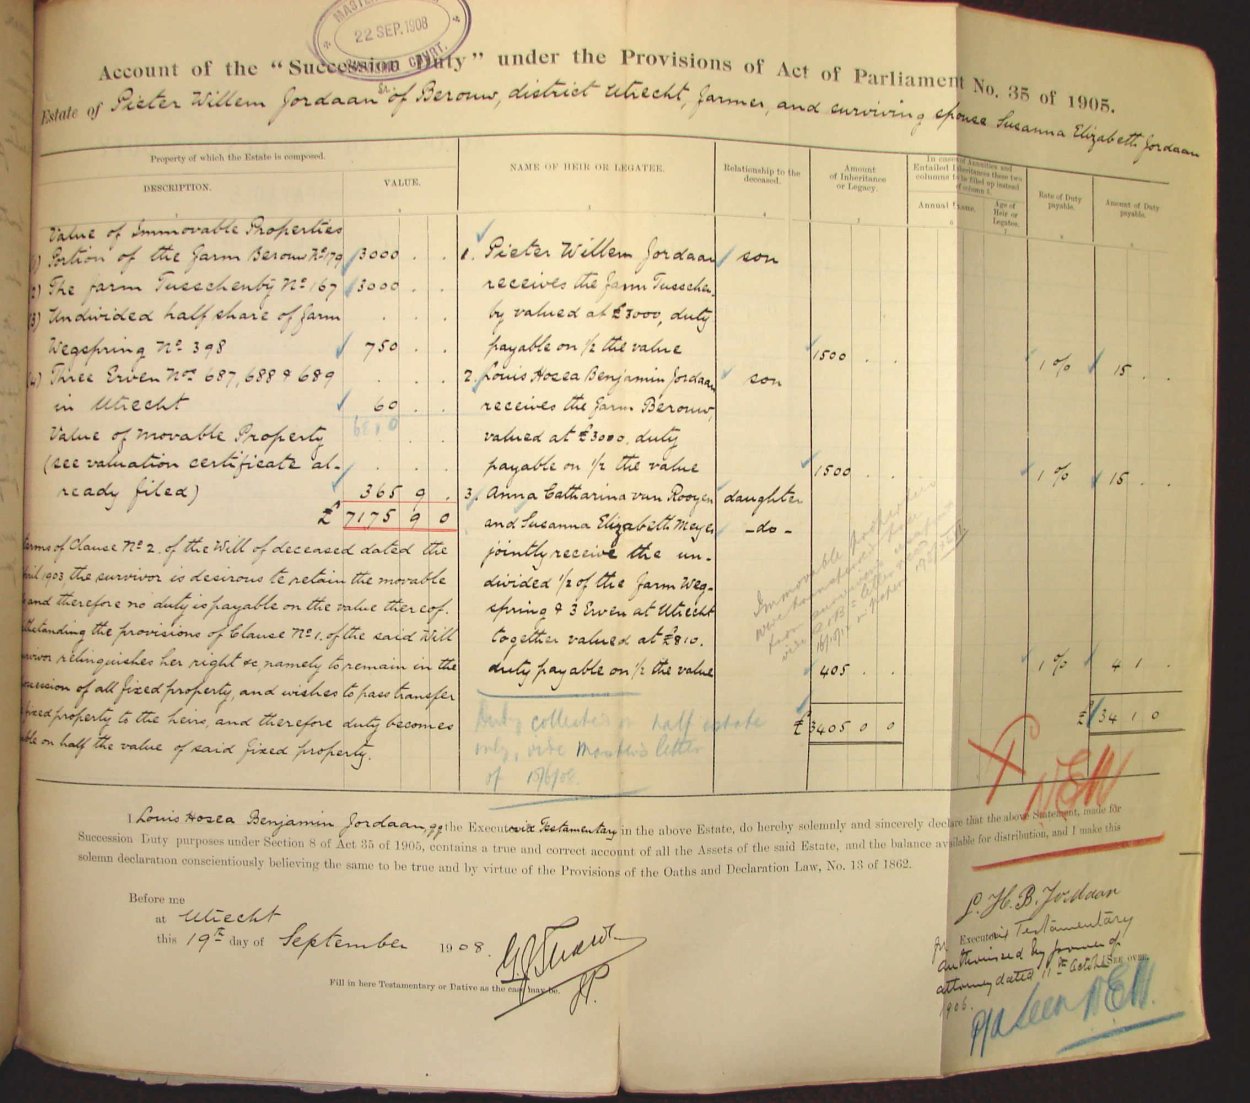 MASTER
22 SEP. 1908
COURT.
Account of the "Succession Duty" under the Provisions of Act of Parliament No. 35 of 1905.
Estate of Pieter Willem Jordaan Sr. of Berouw, district Utrecht, farmer, and surviving spouse Susanna Elizabeth Jordaan
Property of which the Estate is composed.
DESCRIPTION.
VALUE.
NAME OF HEIR OR LEGATEE.
Relationship to the deceased.
Amount of Inheritance or Legacy.
In case of Annuities and Entailed Inheritances these two columns to be filled up instead of column 5.
Annual
Age of Heir or Legatee.
Rate of Duty payable.
Amount of Duty payable.
Value of Immovable Properties
(1) Portion of the farm Berouw No 179 3000 . .
(2) The farm Tusschenby No 167 3000 . .
(3) Undivided half share of farm . . .
Wegspring No 398 750 . .
(4) Three Erven Nos 687, 688 & 689 . . .
in Utrecht 60 . .
6810
Value of Movable Property . .
(see valuation certificate al- . . .
ready filed) 365 9 .
£ 7175 9 0
terms of Clause No 2. of the Will of deceased dated the
April 1903, the survivor is desirous to retain the movable
and therefore no duty is payable on the value thereof.
the provisions of Clause No 1. of the said Will
survivor relinquishes her right &c, namely to remain in the
possession of all fixed property, and wishes to pass transfer
fixed property to the heirs, and therefore duty becomes
on half the value of said fixed property.
1. Pieter Willem Jordaan son
receives the farm Tusschen-
by valued at £3000, duty
payable on 1/2 the value 1500 . . 1% 15 . .
2. Louis Hosea Benjamin Jordaan son
receives the farm Berouw,
valued at £3000, duty
payable on 1/2 the value 1500 . . 1% 15 . .
3. Anna Catharina van Rooyen daughter
and Susanna Elizabeth Meyer -do-
jointly receive the un-
divided 1/2 of the farm Weg-
spring & 3 Erven at Utrecht
together valued at £810.
duty payable on 1/2 the value 405 . . 1% 4 1 .
£ 3405 0 0 £ 34 1 0
Duty collected on half estate
only, vide Master's letter
of
Immovable
NEW
I Louis Hosea Benjamin Jordaan, qq the Executrix Testamentary in the above Estate, do hereby solemnly and sincerely declare that the above Statement, made for
Succession Duty purposes under Section 8 of Act 35 of 1905, contains a true and correct account of all the Assets of the said Estate, and the balance available for distribution, and I make this
solemn declaration conscientiously believing the same to be true and by virtue of the Provisions of the Oaths and Declaration Law, No. 13 of 1862.
Before me
at Utrecht
this 19th day of September 1908.
JP.
Fill in here Testamentary or Dative as the case may be.
L. H. B. Jordaan
for Executrix Testamentary
authorised by power of
attorney dated 11th October
1906.
SEE OVER.